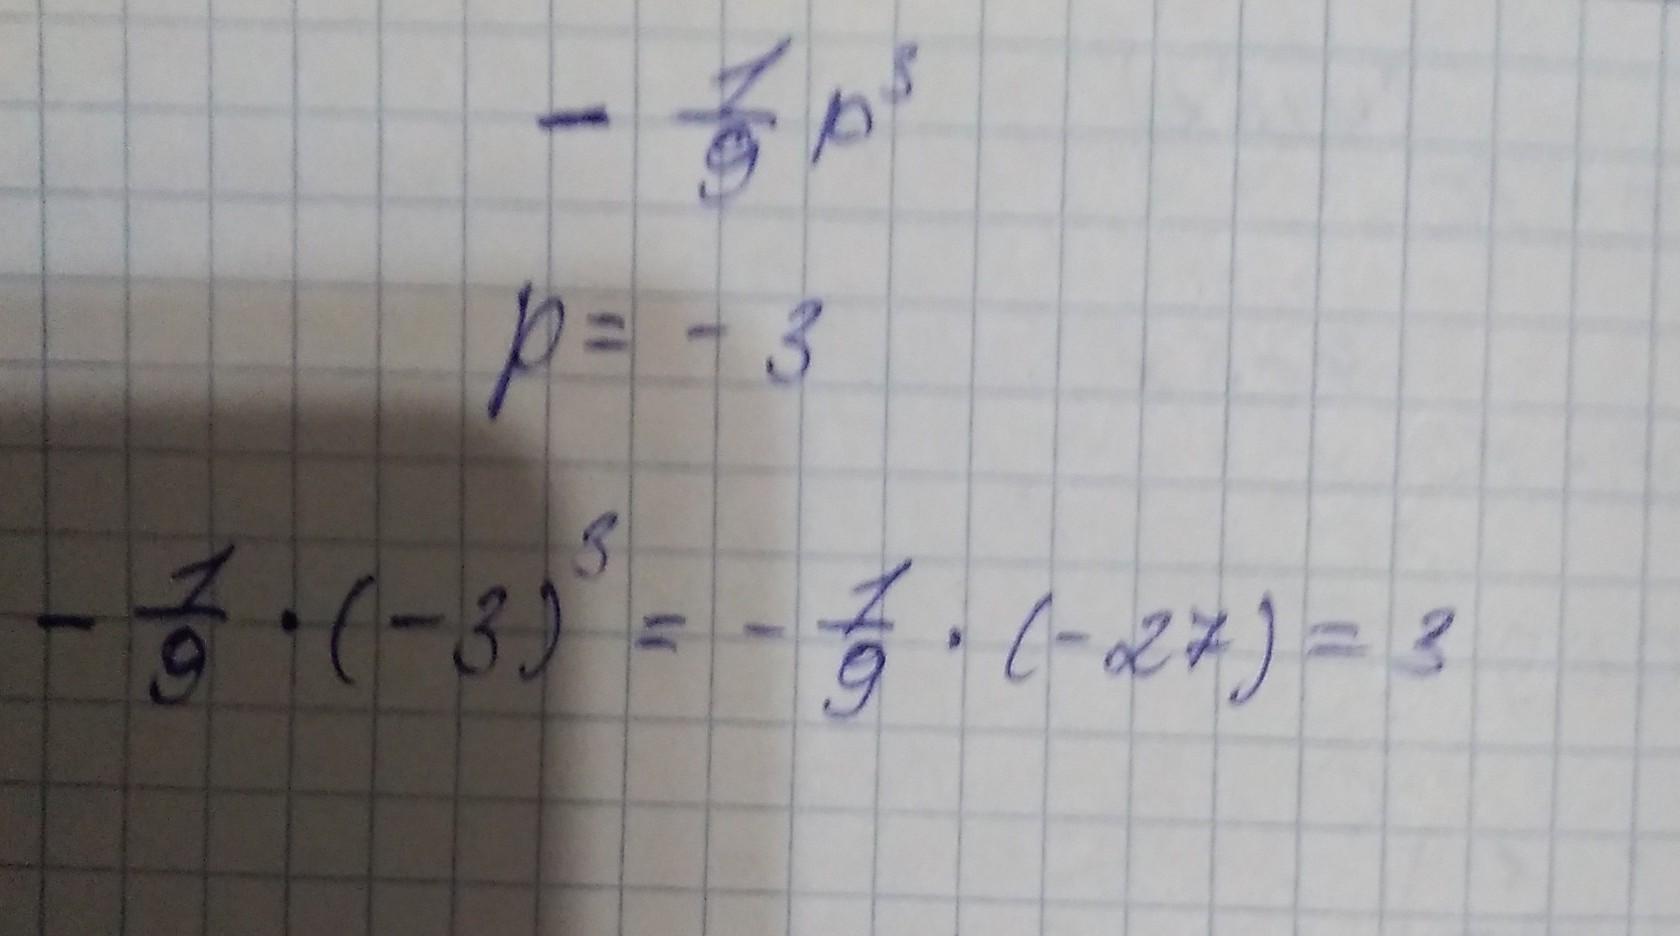 - 1/9 p³
p = - 3
- 1/9 · (-3)³ = - 1/9 · (-27) = 3